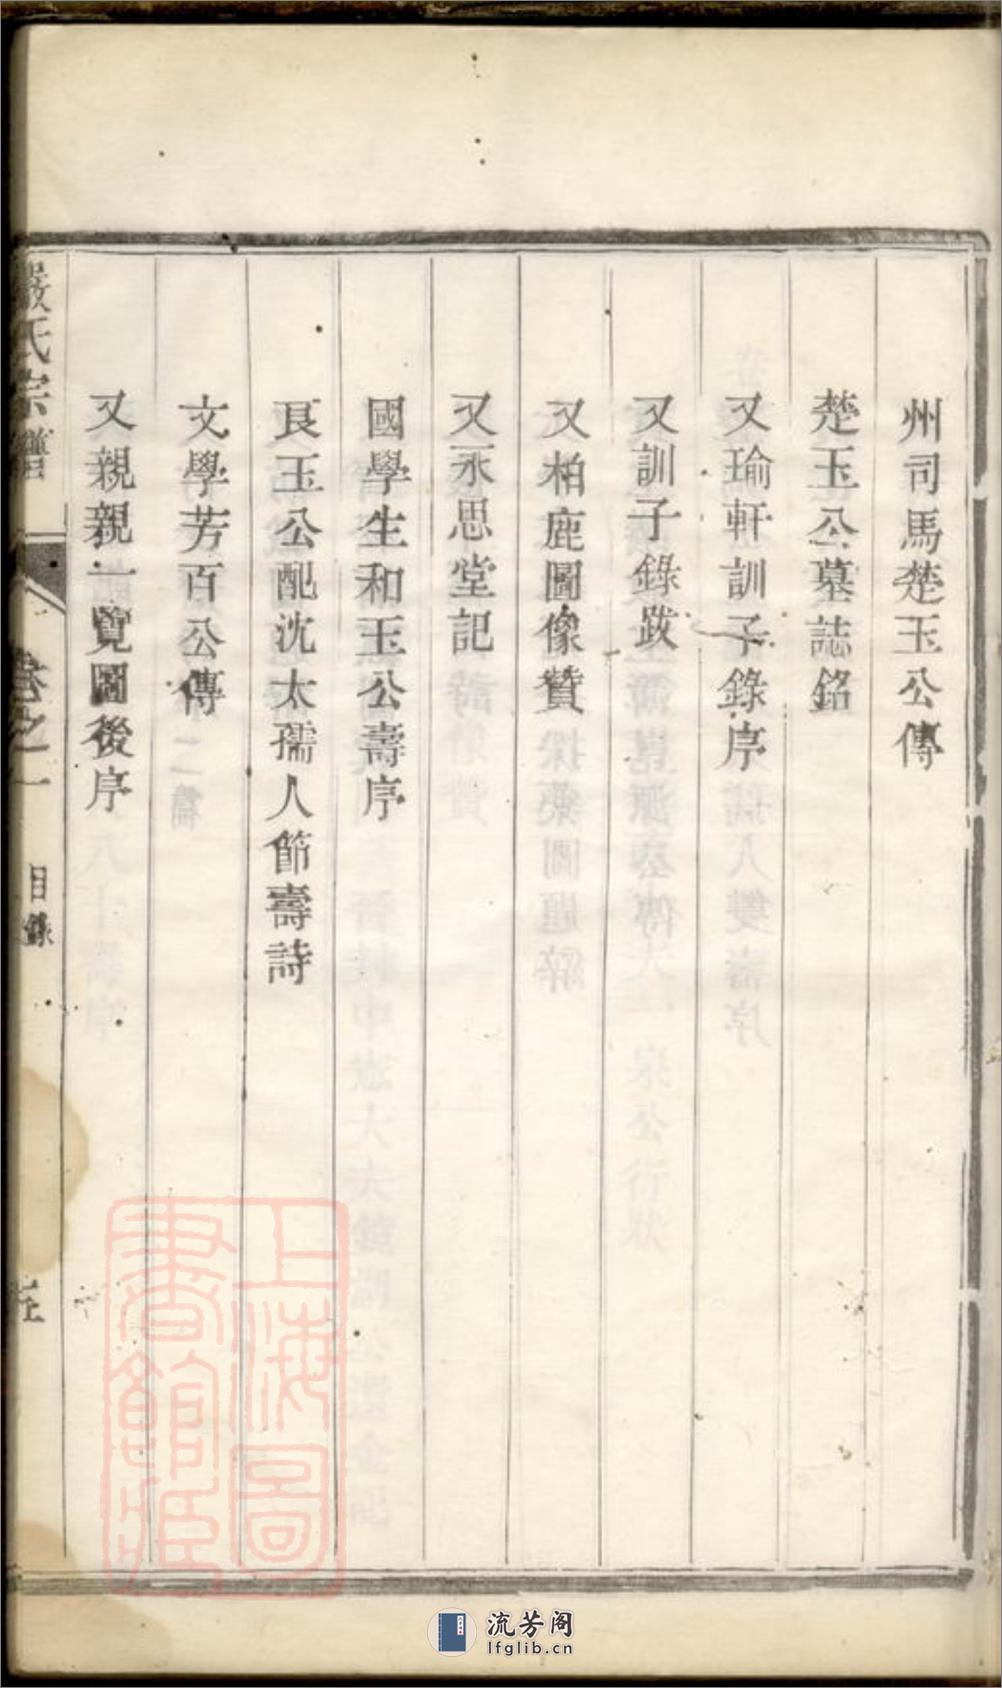 州司馬楚玉公傳
楚玉公墓誌銘
又瑜軒訓子錄序
又訓子錄跋
又柏鹿圖像贊
又永思堂記
國學生和玉公壽序
良玉公配沈太孺人節壽詩
文學芳百公傳
又親親一覽圖後序
嚴氏宗譜
卷之一
目錄
五
上海圖
書館藏
流芳阁
lfglib.cn